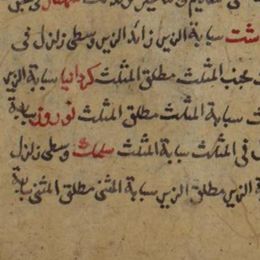 شت سبابة الزير زائد الزير وسطى زلزل فى
بجنب المثلث مطلق المثلث كردانيا سبابة الزير
سبابة المثلث مطلق المثلث نوروز سبابة
فى المثلث سبابة المثلث سلمك وسطى زلزل
الزير مطلق الزير سبابة المثنى مطلق المثنى سبابة